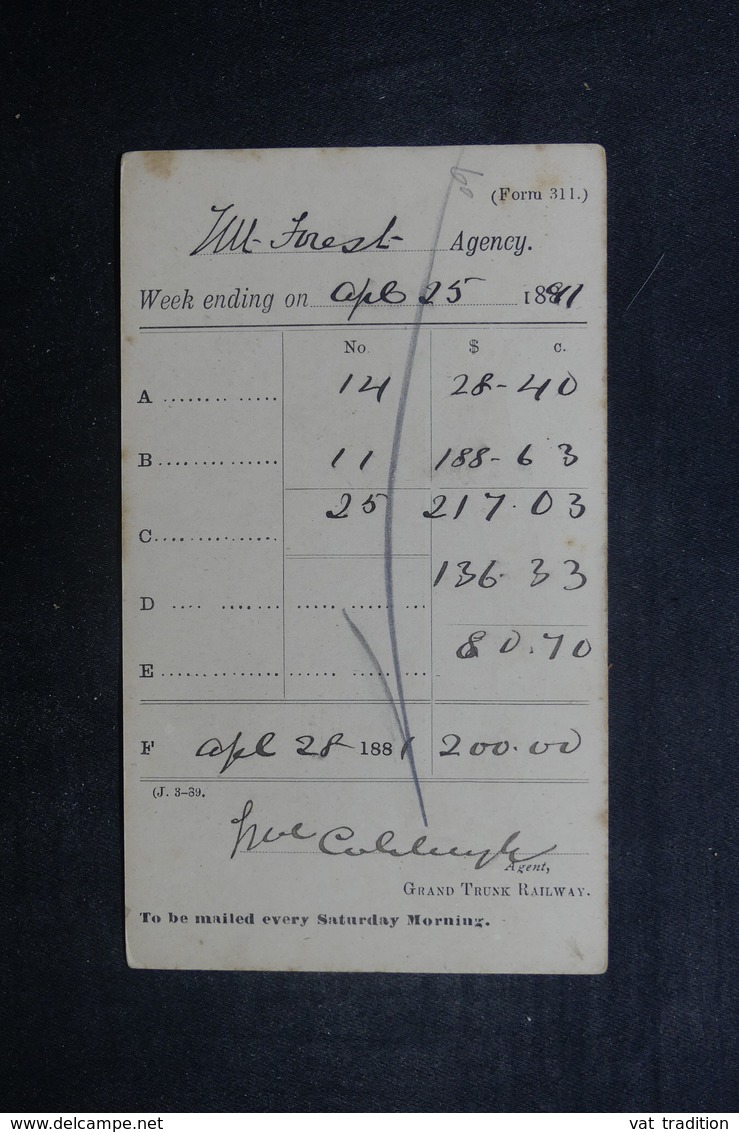 (Form 311.)
Mt Forest Agency.
Week ending on Apl 25 1891
No $ c.
A 14 28-40
B 11 188-63
25 217.03
C
136-33
D
80.70
E
F Apl 28 1881 200.00
(J. 3-89.
Agent,
GRAND TRUNK RAILWAY.
To be mailed every Saturday Morning.
www.delcampe.net
vat tradition